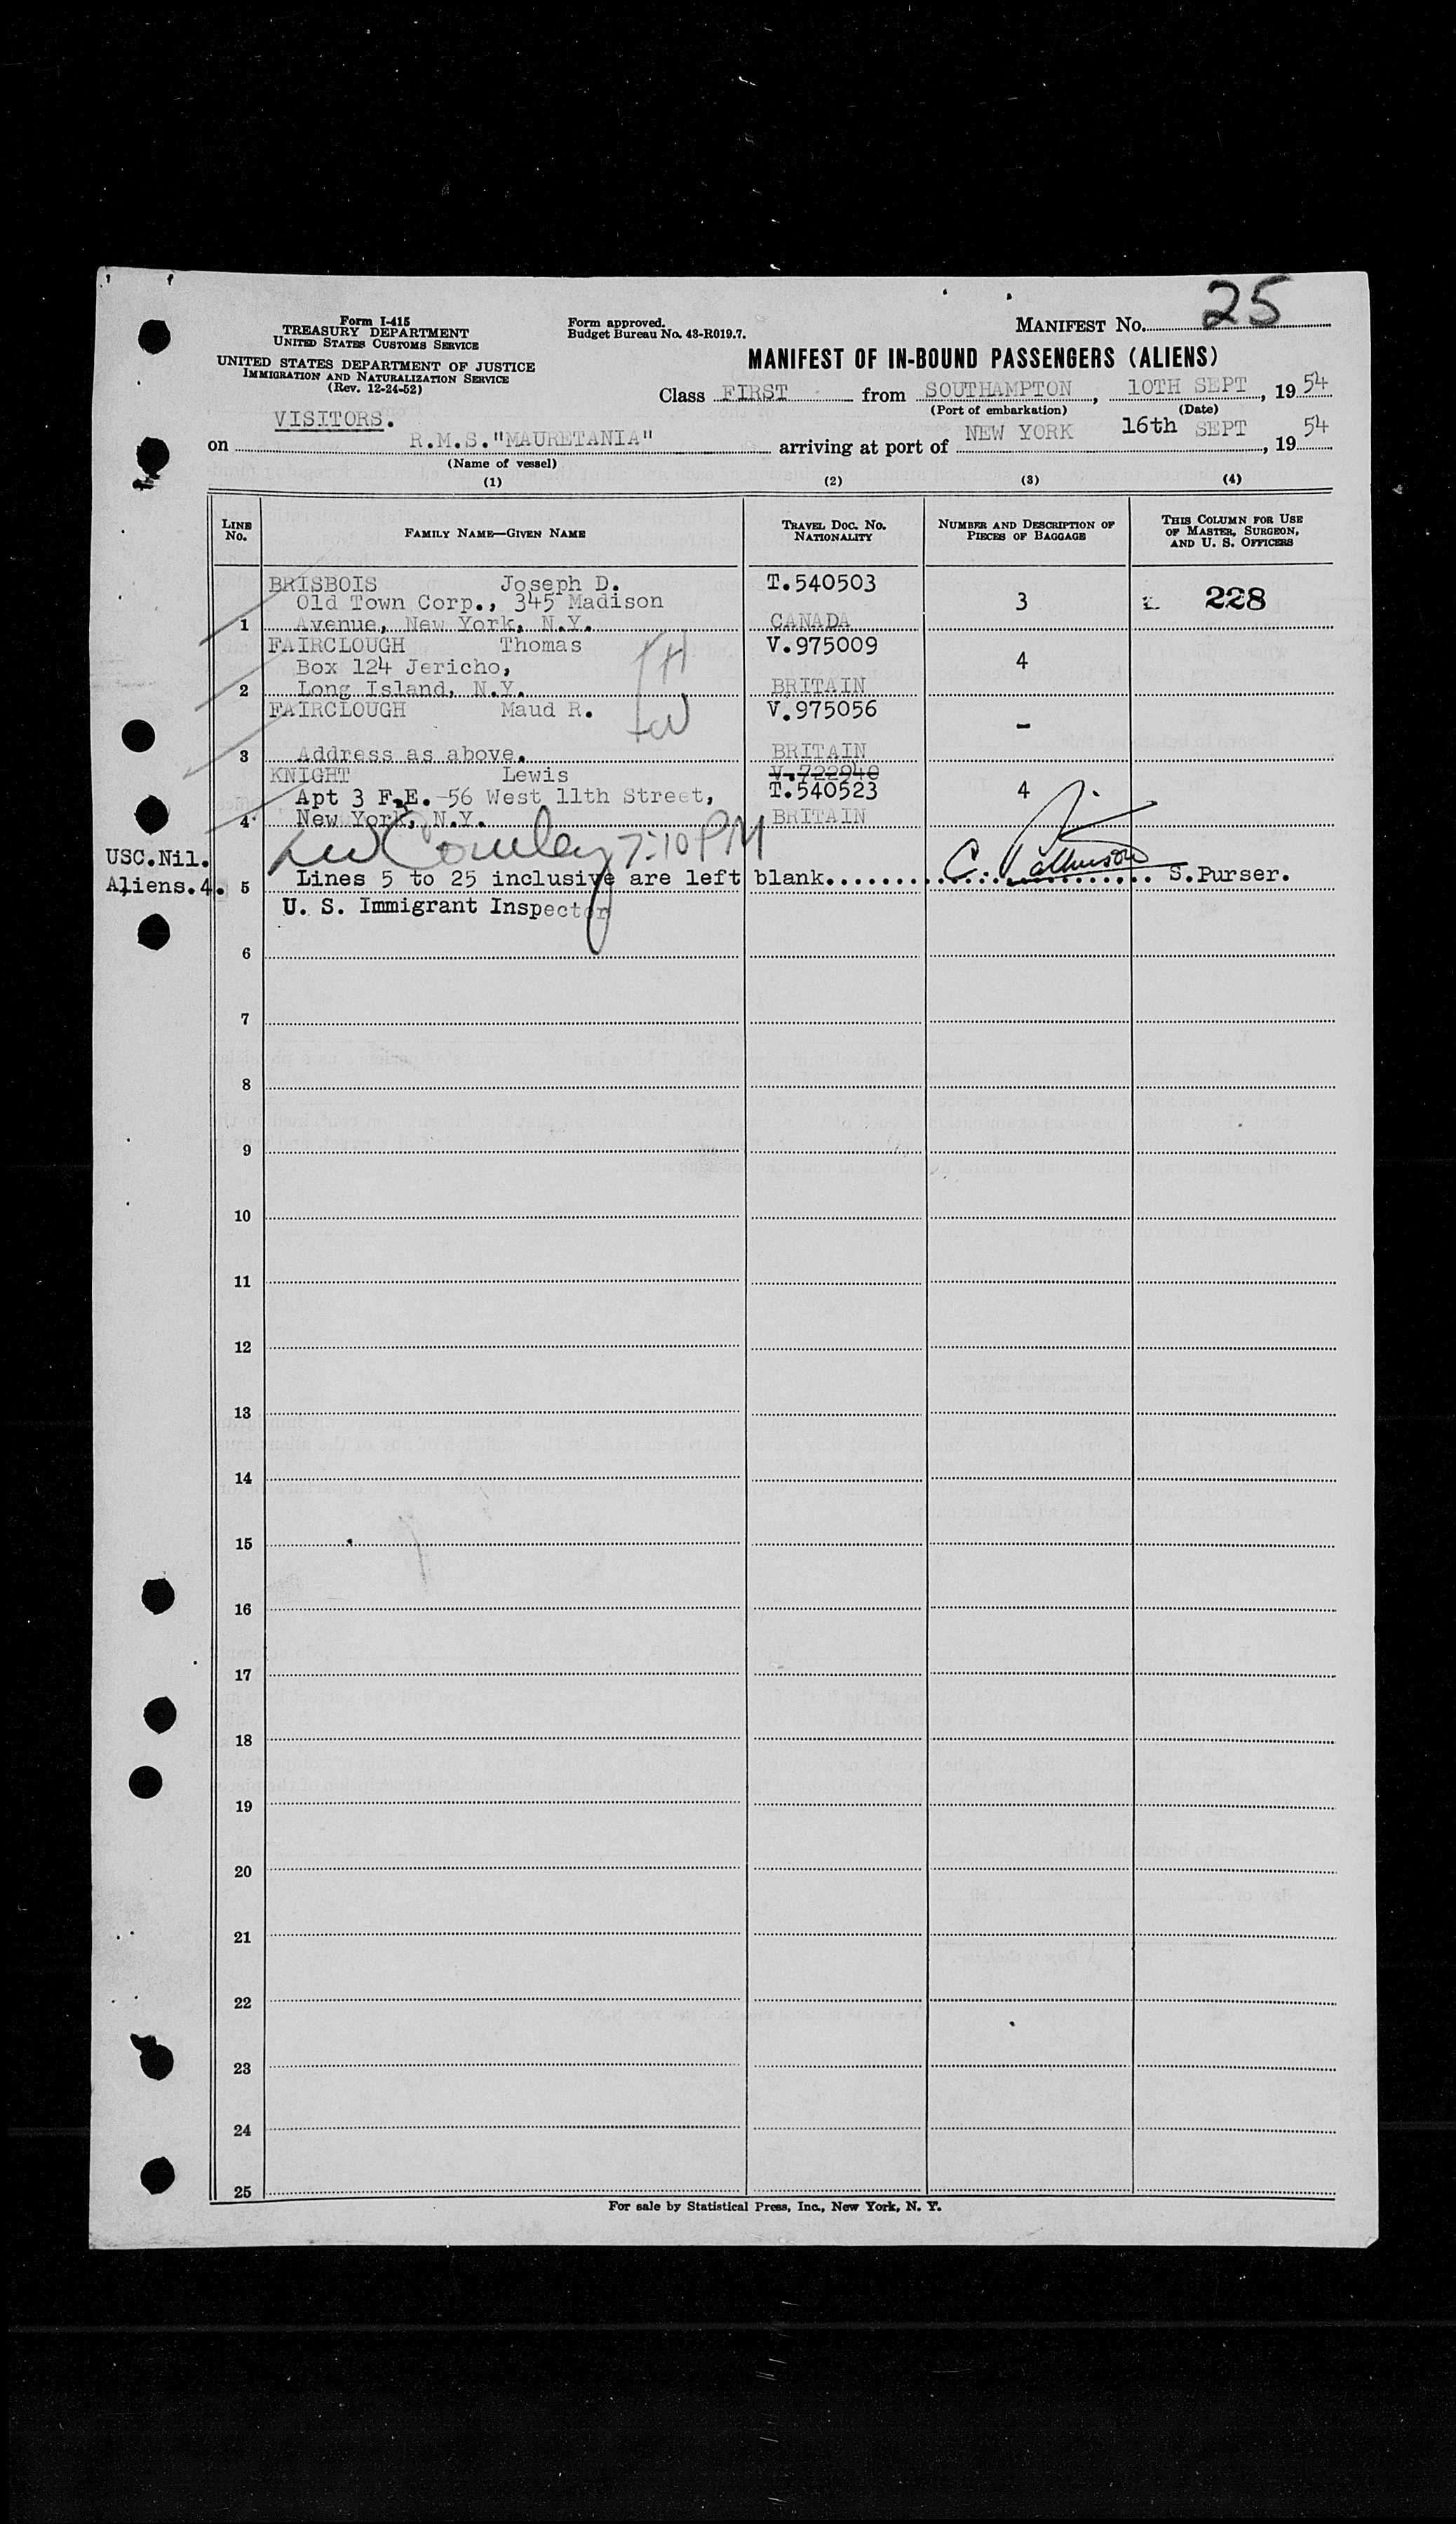 25
Form I-415
TREASURY DEPARTMENT
UNITED STATES CUSTOMS SERVICE
UNITED STATES DEPARTMENT OF JUSTICE
IMMIGRATION AND NATURALIZATION SERVICE
(Rev. 12-24-52)
Form approved.
Budget Bureau No. 43-R019.7.
MANIFEST NO.
MANIFEST OF IN-BOUND PASSENGERS (ALIENS)
Class FIRST from SOUTHAMPTON, 10TH SEPT, 19 54
(Port of embarkation) (Date)
VISITORS.
on R.M.S."MAURETANIA" arriving at port of NEW YORK 16th SEPT, 19 54
(Name of vessel)
(1) (2) (3) (4)
LINE NO. FAMILY NAME—GIVEN NAME TRAVEL DOC. NO. NATIONALITY NUMBER AND DESCRIPTION OF PIECES OF BAGGAGE THIS COLUMN FOR USE OF MASTER, SURGEON, AND U. S. OFFICERS
BRISBOIS Joseph D. T.540503
Old Town Corp., 345 Madison 3 228
1 Avenue, New York, N.Y. CANADA
FAIRCLOUGH Thomas V.975009
Box 124 Jericho, H 4
2 Long Island, N.Y. BRITAIN
FAIRCLOUGH Maud R. V.975056
W -
3 Address as above. BRITAIN
KNIGHT Lewis V.722940
Apt 3 F.E. -56 West 11th Street, T.540523 4
4 New York, N.Y. BRITAIN
Cowley 7:10 PM
USC.Nil.
Aliens.4. 5 Lines 5 to 25 inclusive are left blank........ C. S.Purser.
U. S. Immigrant Inspector
6
7
8
9
10
11
12
13
14
15
16
17
18
19
20
21
22
23
24
25
For sale by Statistical Press, Inc., New York, N. Y.